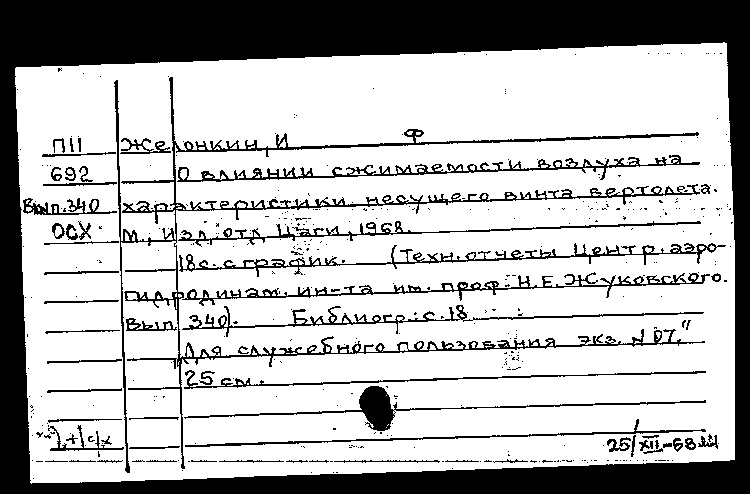 П11 Желонкин, И Ф
692 О влиянии сжимаемости воздуха на
Вып.340 характеристики несущего винта вертолета.
ОСХ М., Изд. отд. Цаги, 1968.
18 с. с график. (Техн. отчеты Центр. аэро-
гидродинам. ин-та им. проф. Н.Е. Жуковского.
Вып. 340). Библиогр.: с. 18
"Для служебного пользования экз. N 07."
25 см.
+/с/х 25/XII-68